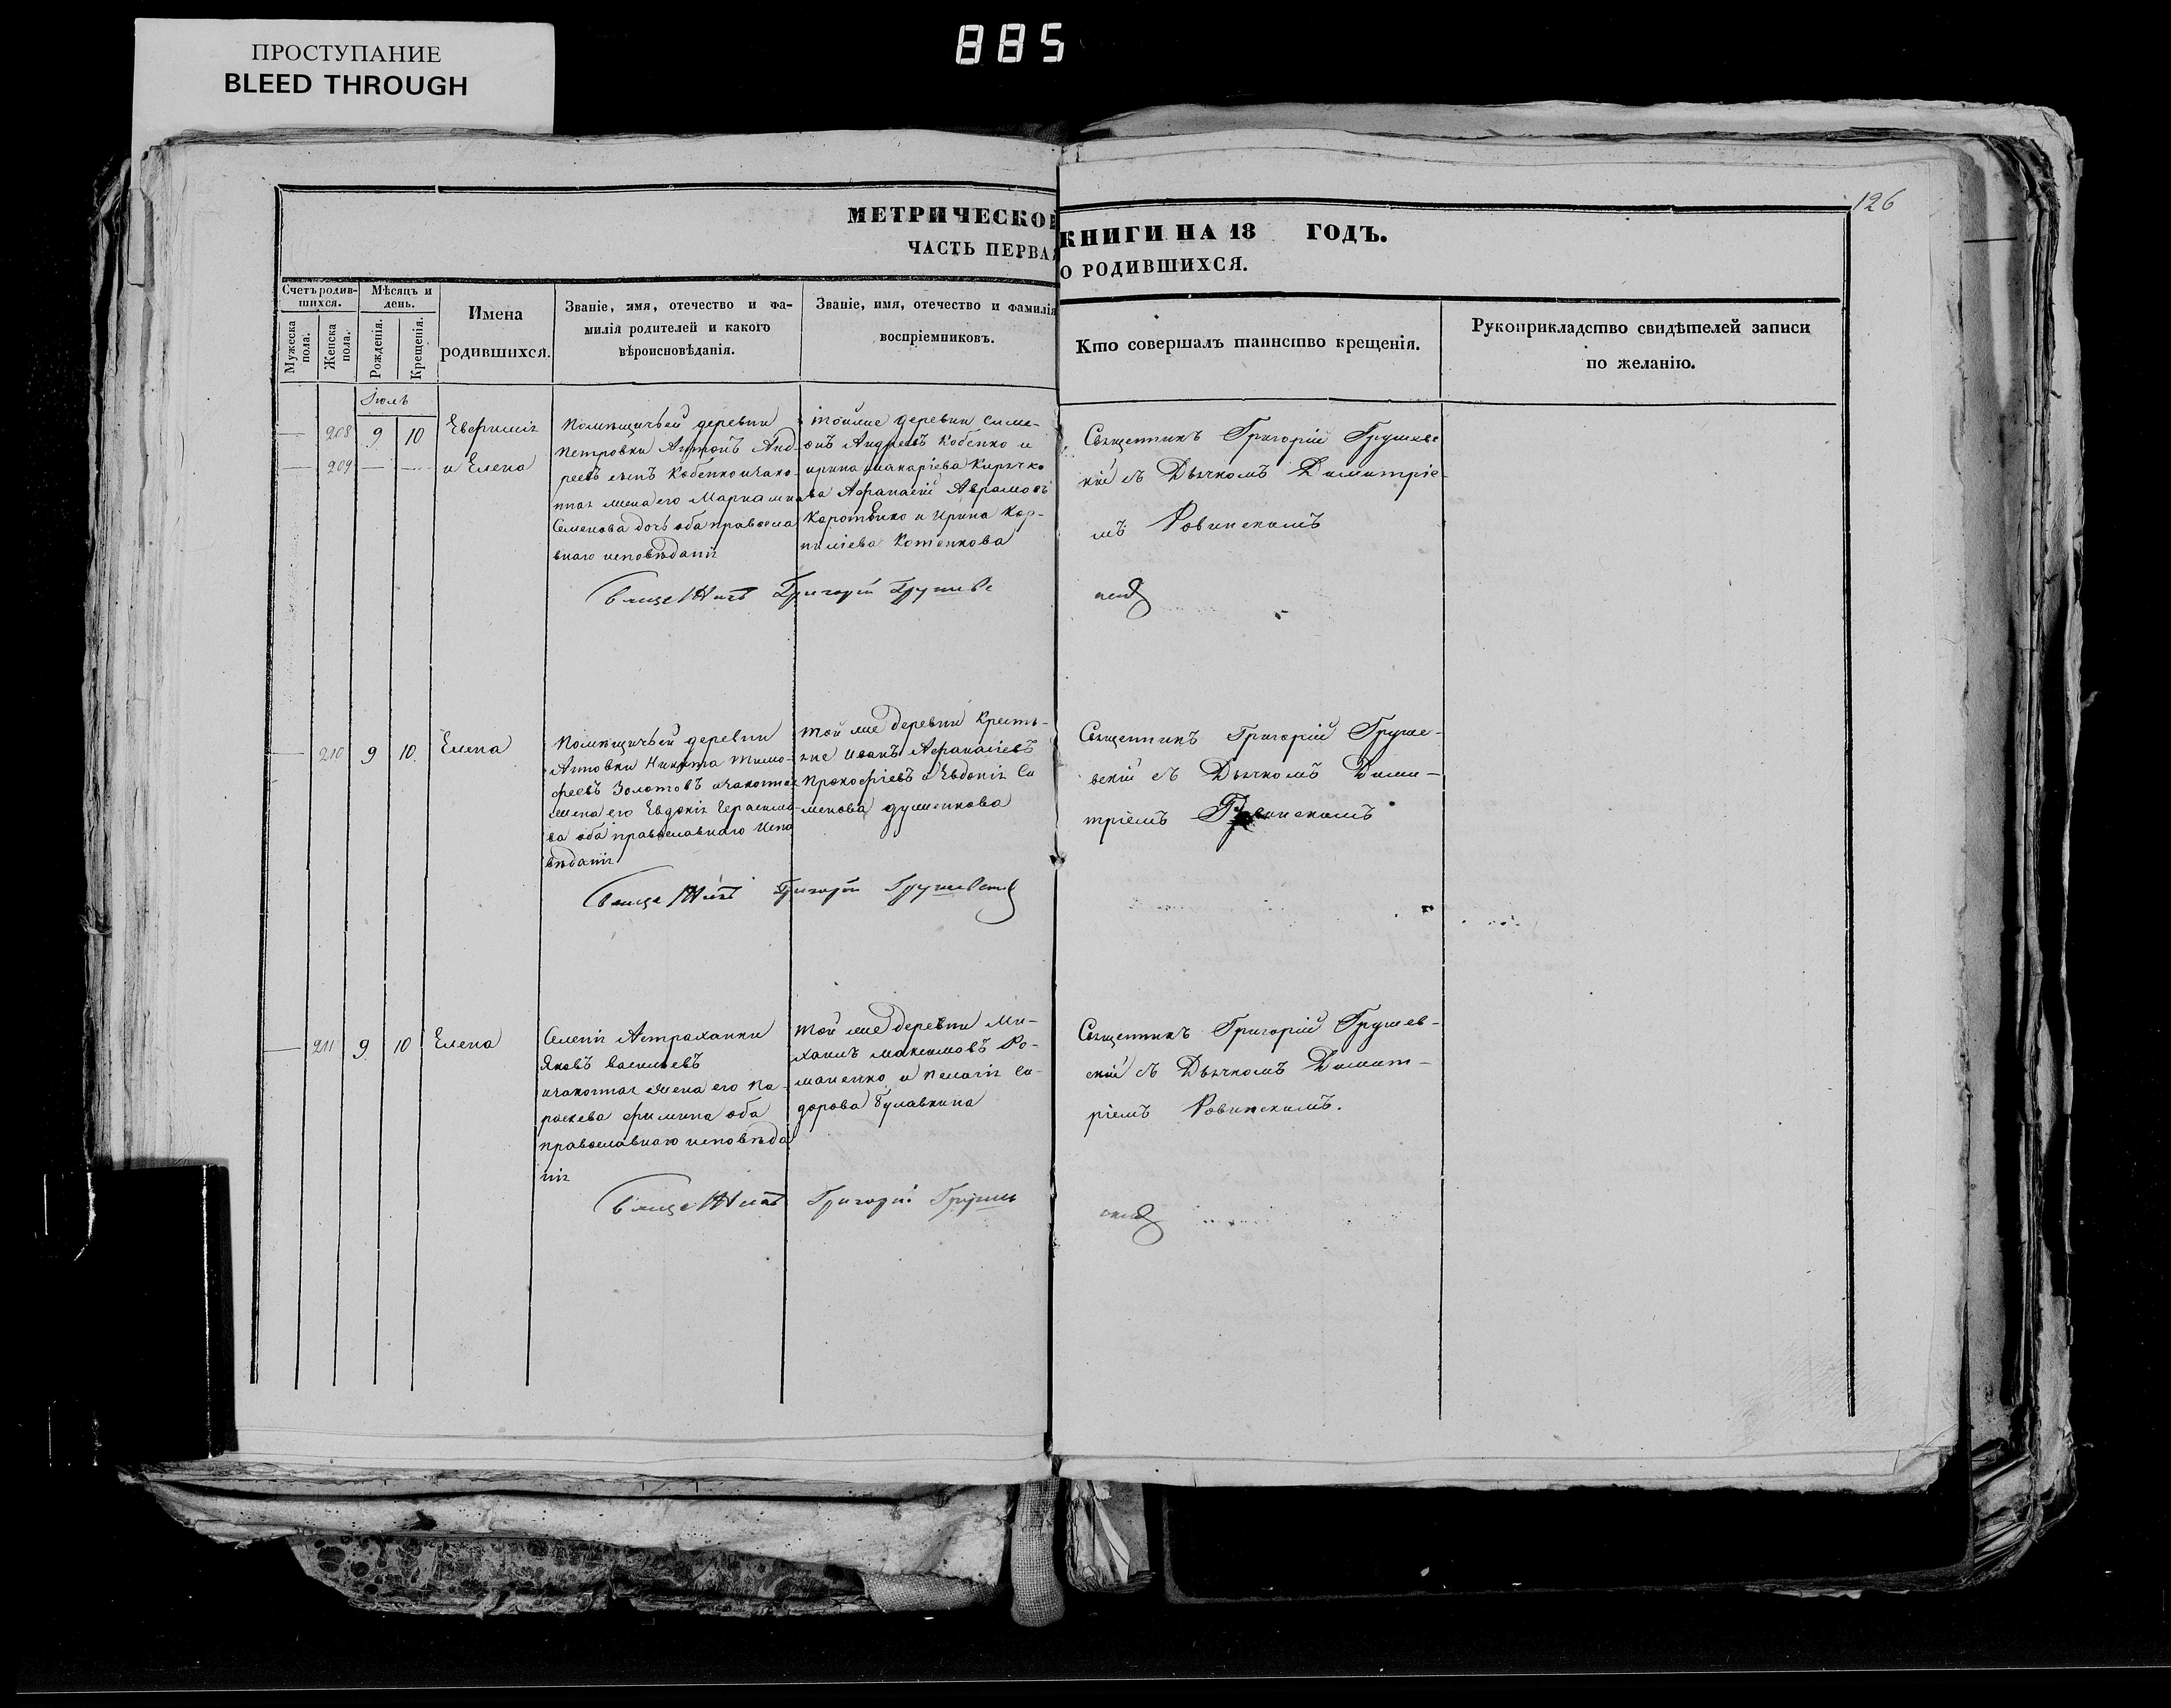 ПРОСТУПАНИЕ
BLEED THROUGH
885
126
МЕТРИЧЕСКОЙ КНИГИ НА 18 ГОДЪ.
ЧАСТЬ ПЕРВАЯ О РОДИВШИХСЯ.
Счетъ родив-
шихся.
Мужеска
пола.
Женска
пола.
Мѣсяцъ и
день.
Рожденія.
Крещенія.
Имена
родившихся.
Званіе, имя, отечество и фа-
милія родителей и какого
вѣроисповѣданія.
Званіе, имя, отечество и фамилія
воспріемниковъ.
Кто совершалъ таинство крещенія.
Рукоприкладство свидѣтелей записи
по желанію.
Іюль
208 9 10 Евфимія
209 — — и Елена
Помѣщичьей деревни
Петровки Антонъ Анд-
реевъ сынъ Кобенко изако-
нная жена его Маріамна
Семенова дочь оба правосла
внаго исповѣданія
тойже деревни Симе-
онъ Андреевъ Кобенко и
ирина макаріева Киричко
ва Афанасій Аврамовъ
Коротенко и Ирина Кор-
ниліева Котенкова
Священникъ Григорій Грушевс
кій съ Дьячкомъ Димитріе-
мъ Ровинскимъ
Священникъ Григорій Грушевс
кій
210 9 10. Елена
Помѣщичьей деревни
Антовки Никита Тимо-
феевъ Золотовъ изаконная
жена его Евдокія Герасимо-
ва оба православнаго испо
вѣданія
той же деревни Кресть-
яне Иванъ Афанасіевъ
Прокофіевъ и Евдокія Си
менова душенкова
Священникъ Григорій Груше-
вскій съ Дьячкомъ Дими-
тріемъ Ровинскимъ
Священникъ Григорій Грушевскій
211 9 10 Елена
Селенія Астраханки
Яковъ васильевъ
изаконная жена его Па-
раскева филипа оба
православнаго исповѣда
нія
той же деревни Ми-
хаилъ максимовъ Ро-
маненко и пелагія Си-
дорова Булавкина
Священникъ Григорій Грушев-
скій съ Дьячкомъ Димит-
ріемъ Ровинскимъ.
Священникъ Григорій Грушев
скій